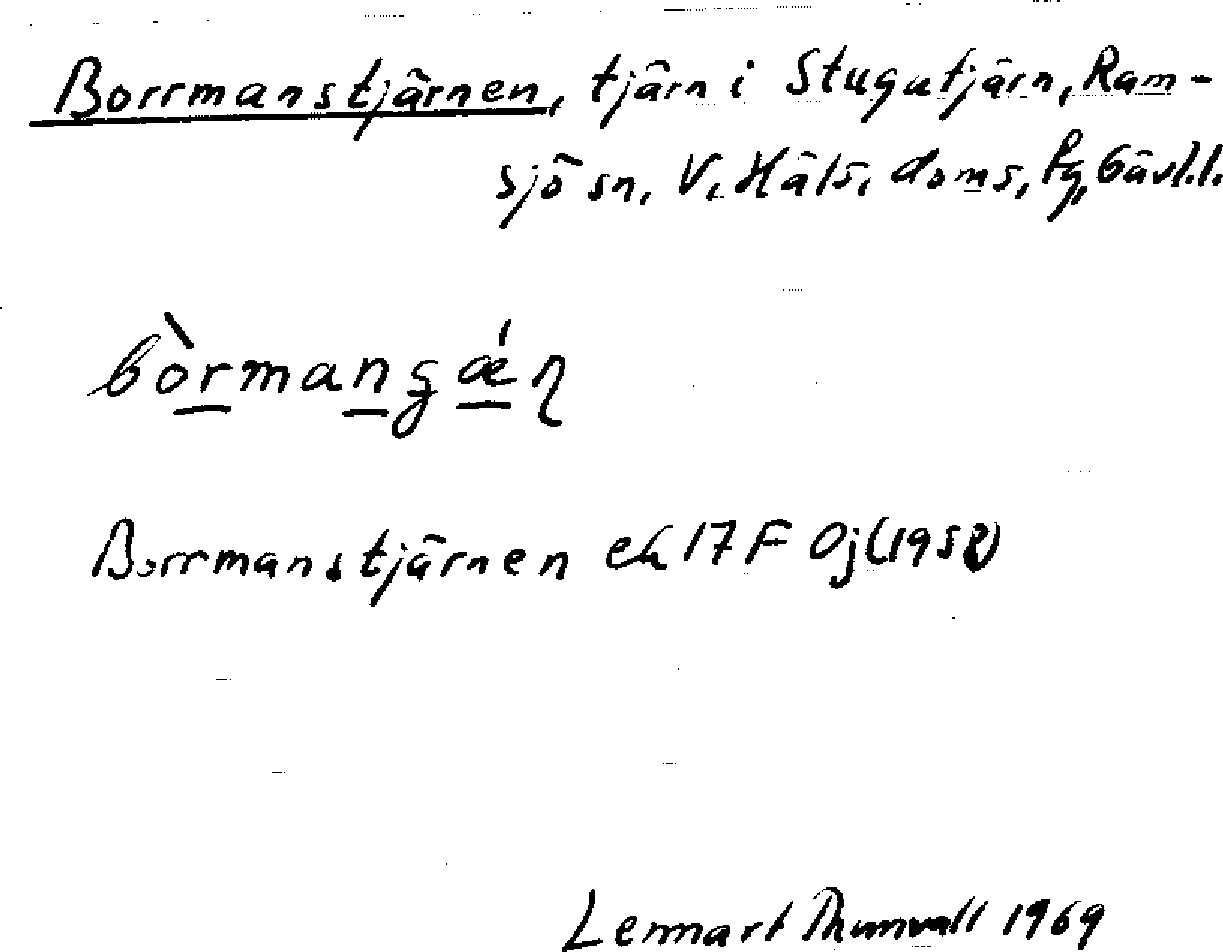 Borrmanstjärnen, tjärn i Stugutjärn, Ram-
sjö sn, V. Häls. doms, Fg, Gävl.l.
bòrmanʂǽɳ
Borrmanstjärnen ek 17 F 0j (1958)
Lennart Thunwall 1969